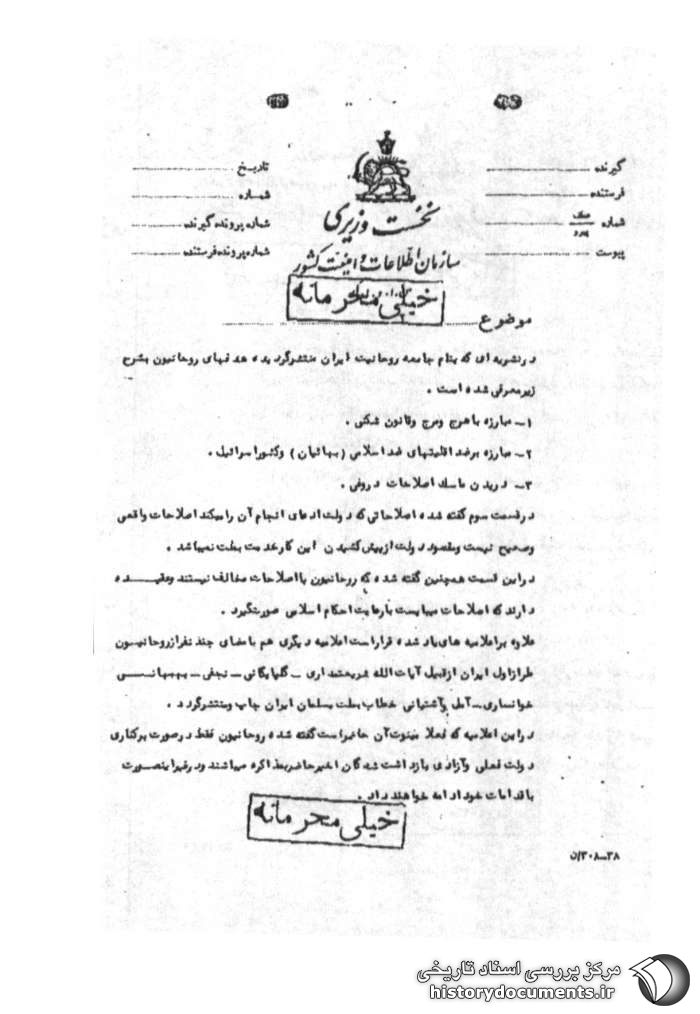 گیرنده
فرستنده
شماره
پیوست
تاریخ
شماره
شماره پرونده گیرنده
شماره پرونده فرستنده
نخست وزیری
سازمان اطلاعات و امنیت کشور
خیلی محرمانه
موضوع
در نشریه ای که بنام جامعه روحانیت ایران منتشر گردیده هدفهای روحانیون بشرح
زیر معرفی شده است .
۱- مبارزه با هرج ومرج وقانون شکنی .
۲- مبارزه برضد اقلیتهای ضد اسلامی (بهائیان) وکشور اسرائیل .
۳- دریدن ماسک اصلاحات دروغی .
در قسمت سوم گفته شده اصلاحاتی که دولت ادعای انجام آن را میکند اصلاحات واقعی
وصحیح نیست ومقصود دولت از پیش کشیدن این کار خدمت بملت نمیباشد .
در این قسمت همچنین گفته شده که روحانیون با اصلاحات مخالف نیستند وعقیده
دارند که اصلاحات میبایست با رعایت احکام اسلامی صورت گیرد .
علاوه بر اعلامیه های یاد شده قرار است اعلامیه دیگری هم با مضای چند نفر از روحانیون
طراز اول ایران از قبیل آیات الله شریعتمداری - گلپایگانی - نجفی - بهبهانی
خوانساری - آملی وآشتیانی خطاب بملت مسلمان ایران چاپ ومنتشر گردد .
در این اعلامیه که فعلا مینوت آن حاضر است گفته شده روحانیون فقط در صورت برکناری
دولت فعلی وآزادی بازداشت شدگان اخیر حاضر بمذاکره میباشند ودر غیر اینصورت
باقدامات خود ادامه خواهند داد .
خیلی محرمانه
۳۸-۳۰۸/ن
مرکز بررسی اسناد تاریخی
historydocuments.ir